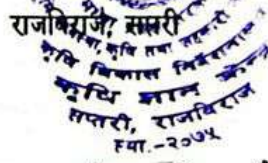 राजविराज, सप्तरी
कृषि तथा
कृषि विकास निर्देशनालय
कृषि ज्ञान केन्द्र
सप्तरी, राजविराज
स्था.-२०७५